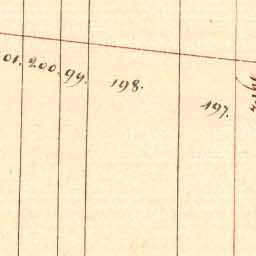 01. 200. 99. 198.
197.